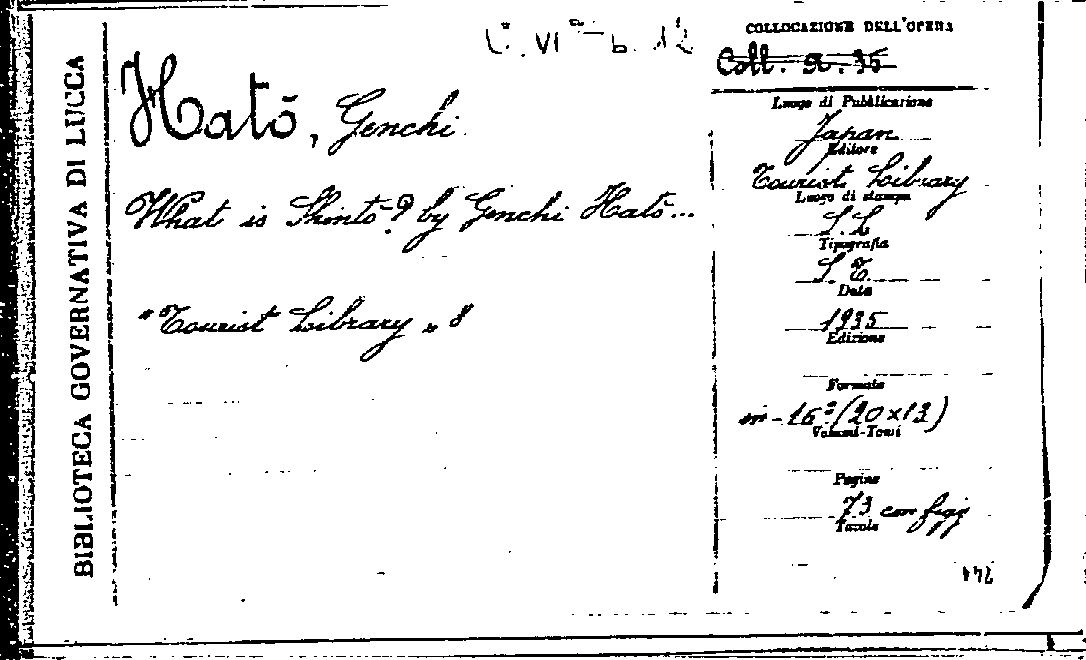 BIBLIOTECA GOVERNATIVA DI LUCCA
VI b. 12
Hatō, Genchi
What is Shintō? by Genchi Hatō...
"Tourist Library" 8
COLLOCAZIONE DELL'OPERA
Coll. A. 35
Luogo di Pubblicazione
Japan
Editore
Tourist Library
Luogo di stampa
S. L
Tipografia
S. T.
Data
1935
Edizione
Formato
in-16° (20x13)
Volumi-Tomi
Pagine
73 con figg
Tavole